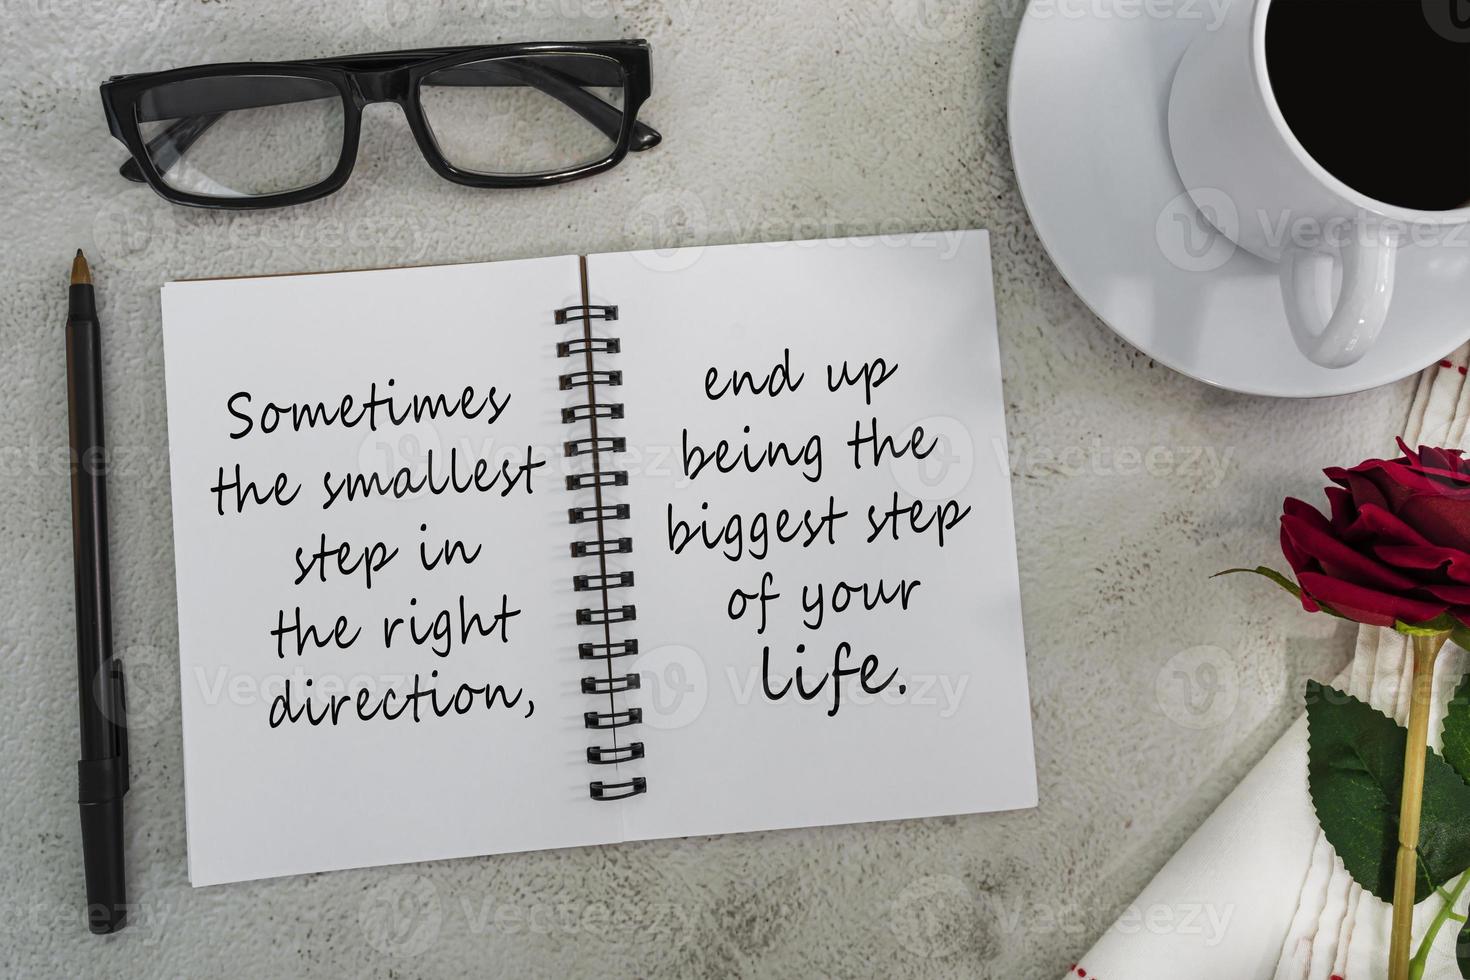 Sometimes
the smallest
step in
the right
direction,
end up
being the
biggest step
of your
life.
Vecteezy